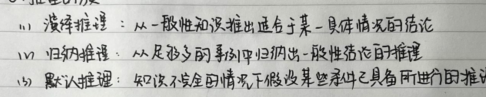 (1) 演绎推理：从一般性知识推出适合于某一具体情况的结论
(2) 归纳推理：从足够多的事例中归纳出一般性结论的推理
(3) 默认推理：知识不完全的情况下假设某些条件已具备所进行的推